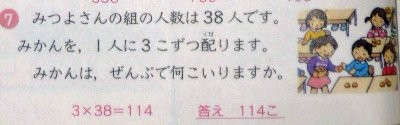 7 みつよさんの組の人数は38人です。
みかんを，1人に3こずつ配ります。
みかんは，ぜんぶで何こいりますか。
3×38=114 答え 114こ